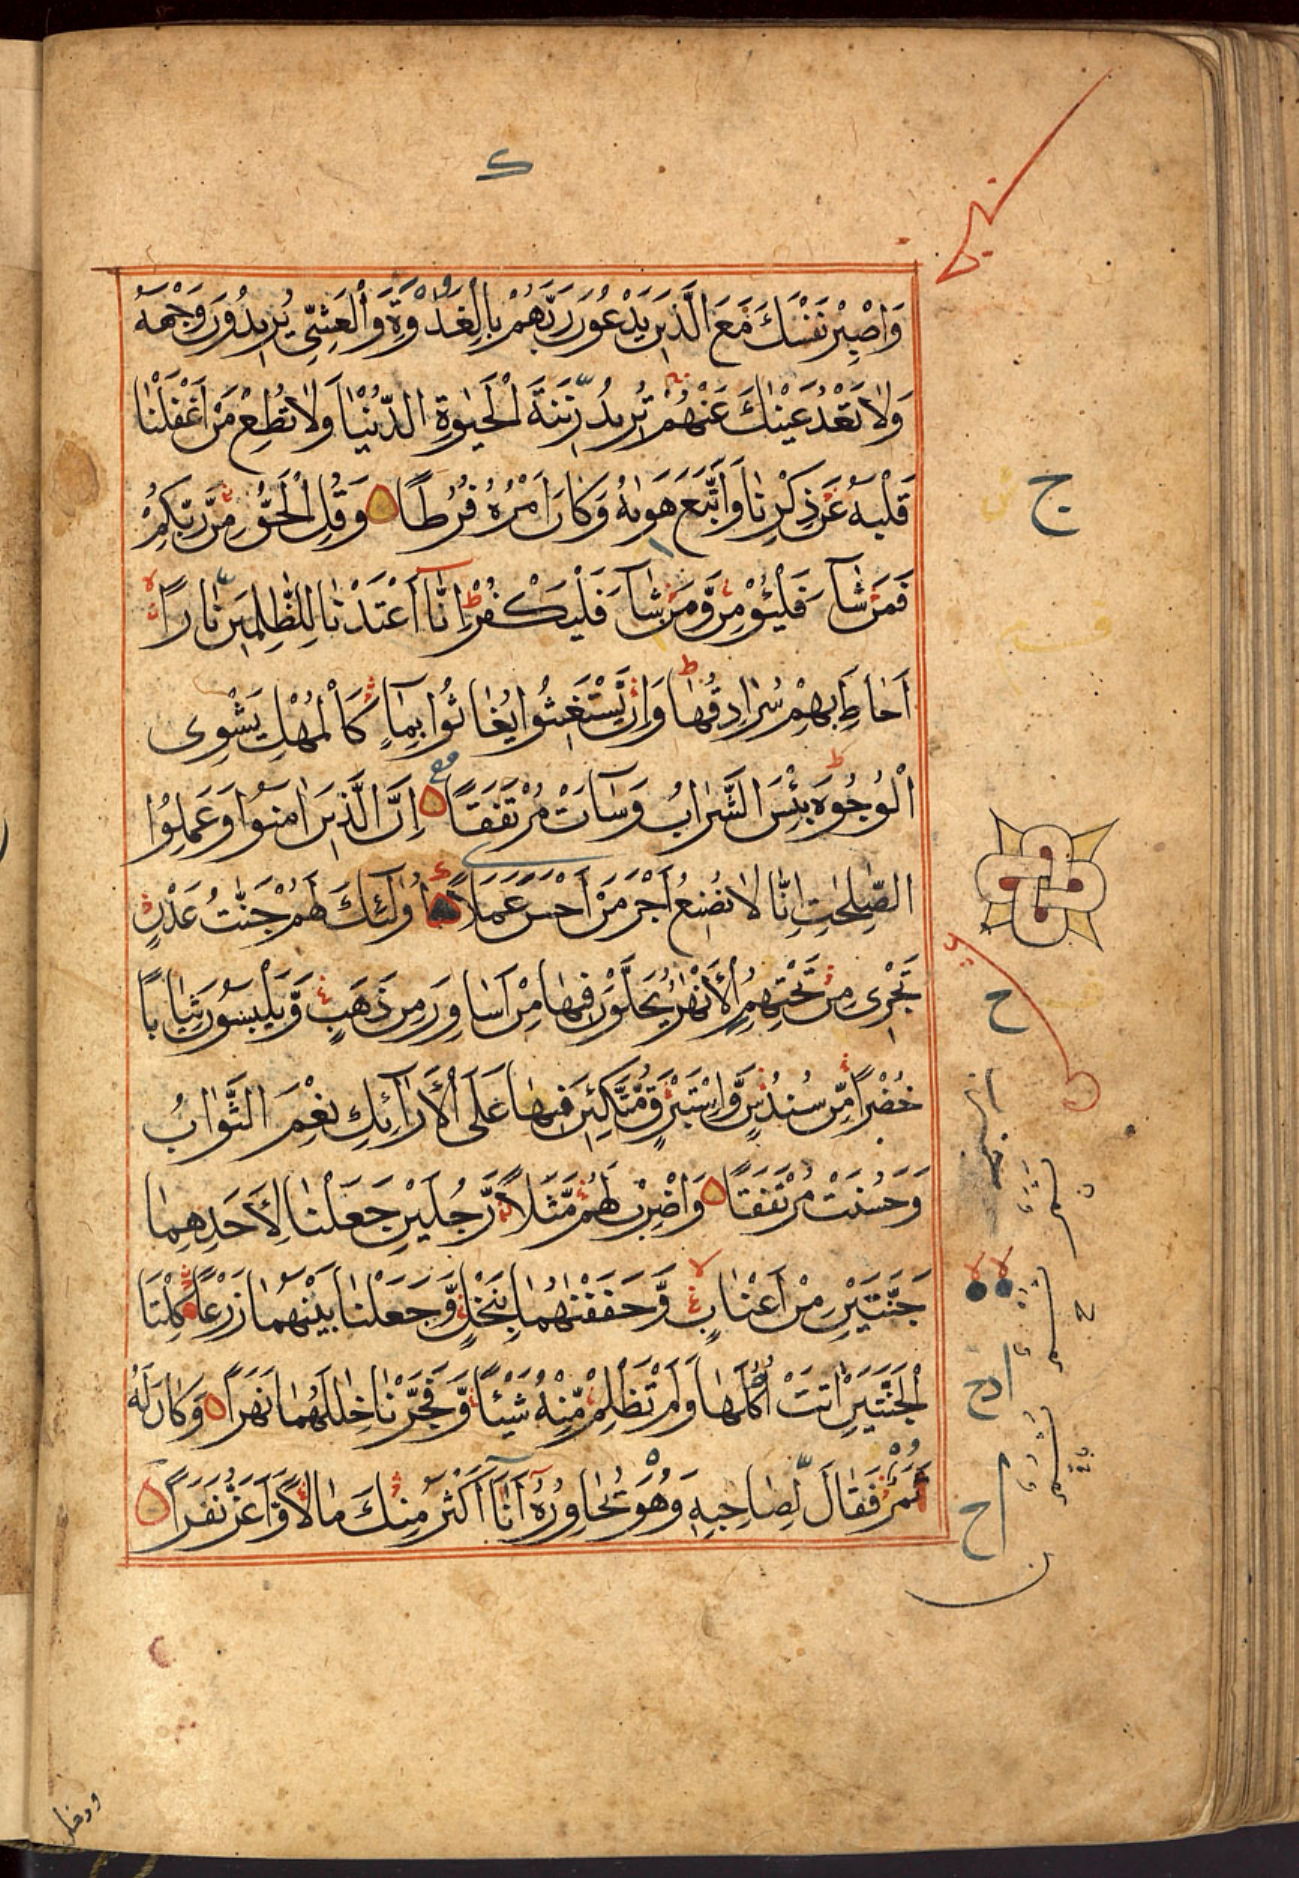 ک
وَاصْبِرْ نَفْسَكَ مَعَ الَّذِينَ يَدْعُونَ رَبَّهُمْ بِالْغَدٰوةِ وَالْعَشِيِّ يُرِيدُونَ وَجْهَهُ
وَلَا تَعْدُ عَيْنٰكَ عَنْهُمْ تُرِيدُ زِينَةَ الْحَيٰوةِ الدُّنْيَا وَلَا تُطِعْ مَنْ أَغْفَلْنَا
قَلْبَهُ عَنْ ذِكْرِنَا وَاتَّبَعَ هَوٰىهُ وَكَانَ أَمْرُهُ فُرُطًا وَقُلِ الْحَقُّ مِنْ رَّبِّكُمْ
فَمَنْ شَآءَ فَلْيُؤْمِنْ وَّمَنْ شَآءَ فَلْيَكْفُرْ إِنَّآ أَعْتَدْنَا لِلظّٰلِمِينَ نَارًا
أَحَاطَ بِهِمْ سُرَادِقُهَا وَإِنْ يَّسْتَغِيثُوا يُغَاثُوا بِمَآءٍ كَالْمُهْلِ يَشْوِى
الْوُجُوهَ بِئْسَ الشَّرَابُ وَسَآءَتْ مُرْتَفَقًا إِنَّ الَّذِينَ اٰمَنُوا وَعَمِلُوا
الصّٰلِحٰتِ إِنَّا لَا نُضِيعُ أَجْرَ مَنْ أَحْسَنَ عَمَلًا أُولٰٓئِكَ لَهُمْ جَنّٰتُ عَدْنٍ
تَجْرِى مِنْ تَحْتِهِمُ الْأَنْهٰرُ يُحَلَّوْنَ فِيهَا مِنْ أَسَاوِرَ مِنْ ذَهَبٍ وَّيَلْبَسُونَ ثِيَابًا
خُضْرًا مِّنْ سُنْدُسٍ وَّإِسْتَبْرَقٍ مُّتَّكِئِينَ فِيهَا عَلَى الْأَرَآئِكِ نِعْمَ الثَّوَابُ
وَحَسُنَتْ مُرْتَفَقًا وَاضْرِبْ لَهُمْ مَّثَلًا رَّجُلَيْنِ جَعَلْنَا لِأَحَدِهِمَا
جَنَّتَيْنِ مِنْ أَعْنَابٍ وَّحَفَفْنٰهُمَا بِنَخْلٍ وَّجَعَلْنَا بَيْنَهُمَا زَرْعًا كِلْتَا
الْجَنَّتَيْنِ اٰتَتْ أُكُلَهَا وَلَمْ تَظْلِمْ مِّنْهُ شَيْئًا وَّفَجَّرْنَا خِلٰلَهُمَا نَهَرًا وَكَانَ لَهُ
ثَمَرٌ فَقَالَ لِصَاحِبِهِ وَهُوَ يُحَاوِرُهُ أَنَآ أَكْثَرُ مِنْكَ مَالًا وَّأَعَزُّ نَفَرًا
ج
ح
ودخل